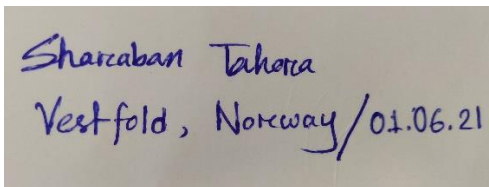 Sharaban Tahora
Vestfold, Norway/01.06.21